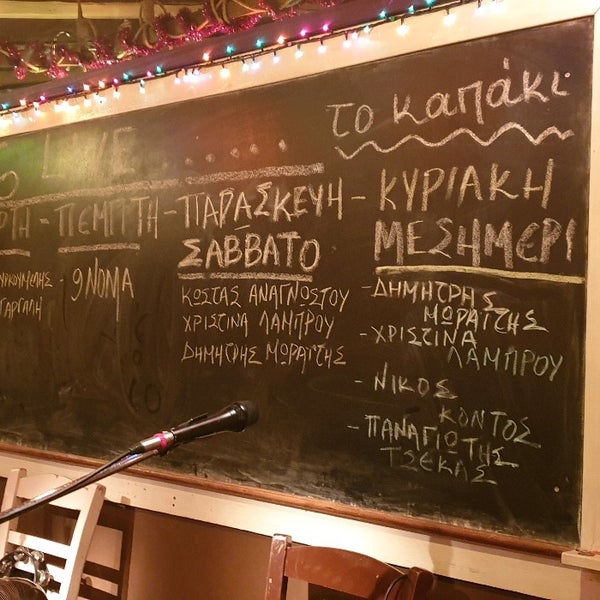 το καπάκι
LIVE.....
ΡΤΗ - ΠΕΜΠΤΗ - ΠΑΡΑΣΚΕΥΗ - ΚΥΡΙΑΚΗ
ΣΑΒΒΑΤΟ
ΜΕΣΗΜΕΡΙ
- 9ΝΟΜΑ
ΓΑΡΓΑΛΗ
ΚΩΣΤΑΣ ΑΝΑΓΝΩΣΤΟΥ
ΧΡΙΣΤΙΝΑ ΛΑΜΠΡΟΥ
ΔΗΜΗΤΡΗΣ ΜΩΡΑΪΤΗΣ
- ΔΗΜΗΤΡΗΣ
ΜΩΡΑΪΤΗΣ
- ΧΡΙΣΤΙΝΑ
ΛΑΜΠΡΟΥ
- ΝΙΚΟΣ
ΚΟΝΤΟΣ
- ΠΑΝΑΓΙΩΤΗΣ
ΤΣΕΚΑΣ